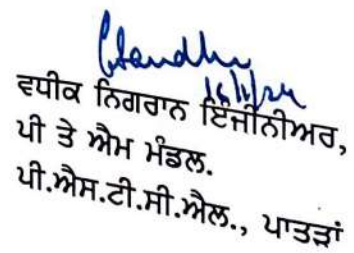 16/1/24
ਵਧੀਕ ਨਿਗਰਾਨ ਇੰਜੀਨੀਅਰ,
ਪੀ ਤੇ ਐਮ ਮੰਡਲ.
ਪੀ.ਐਸ.ਟੀ.ਸੀ.ਐਲ., ਪਾਤੜਾਂ